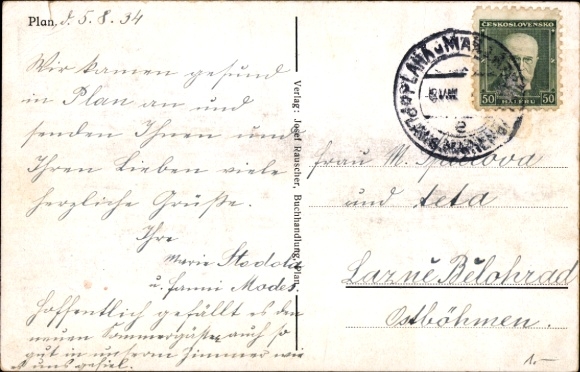 Plan, d. 5.8.34
Wir kamen gesund
in Plan an und
senden Ihnen und
Ihren Lieben viele
herzliche Grüße.
Ihre
Marie Stadola
u. Fanni Modes.
Hoffentlich gefällt es den
neuen Sommergästen auch so
gut in unserem Zimmer wie
es uns gefiel.
Verlag: Josef Rauscher, Buchhandlung, Plan.
ČESKOSLOVENSKO
50 HALÉŘŮ 50
PLANÁ U MAR.
Frau M.
und teta
Lazně Bělohrad
Ostböhmen.
1.-